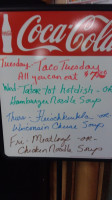 Coca-Cola
Tuesday- Taco Tuesday
All you can eat $7.00
Wed- Tator-tot hotdish -or-
Hamburger Noodle Soup
Thurs- Fleischkuekla -or-
Wisconsin Cheese Soup
Fri Meatloaf -or-
Chicken Noodle Soup